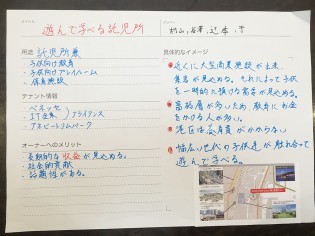 遊んで学べる託児所
用途 託児所兼
・子供向け教育
・子供向けプレイルーム
・保育施設
テナント情報
・ベネッセ
・IT企業
アライアンス
オーナーへのメリット
・長期的な収益が見込める。
・社会的貢献
・話題性がある。
具体的なイメージ
近くに大型商業施設が出来、
集客が見込める。それによって子供
を一時的に預ける需要が見込める。
高齢層が多いため、教育にお金
をかける人が多い。
港区は保育費がかからない
幅広い世代の子供達が触れ合って
遊んで学べる。